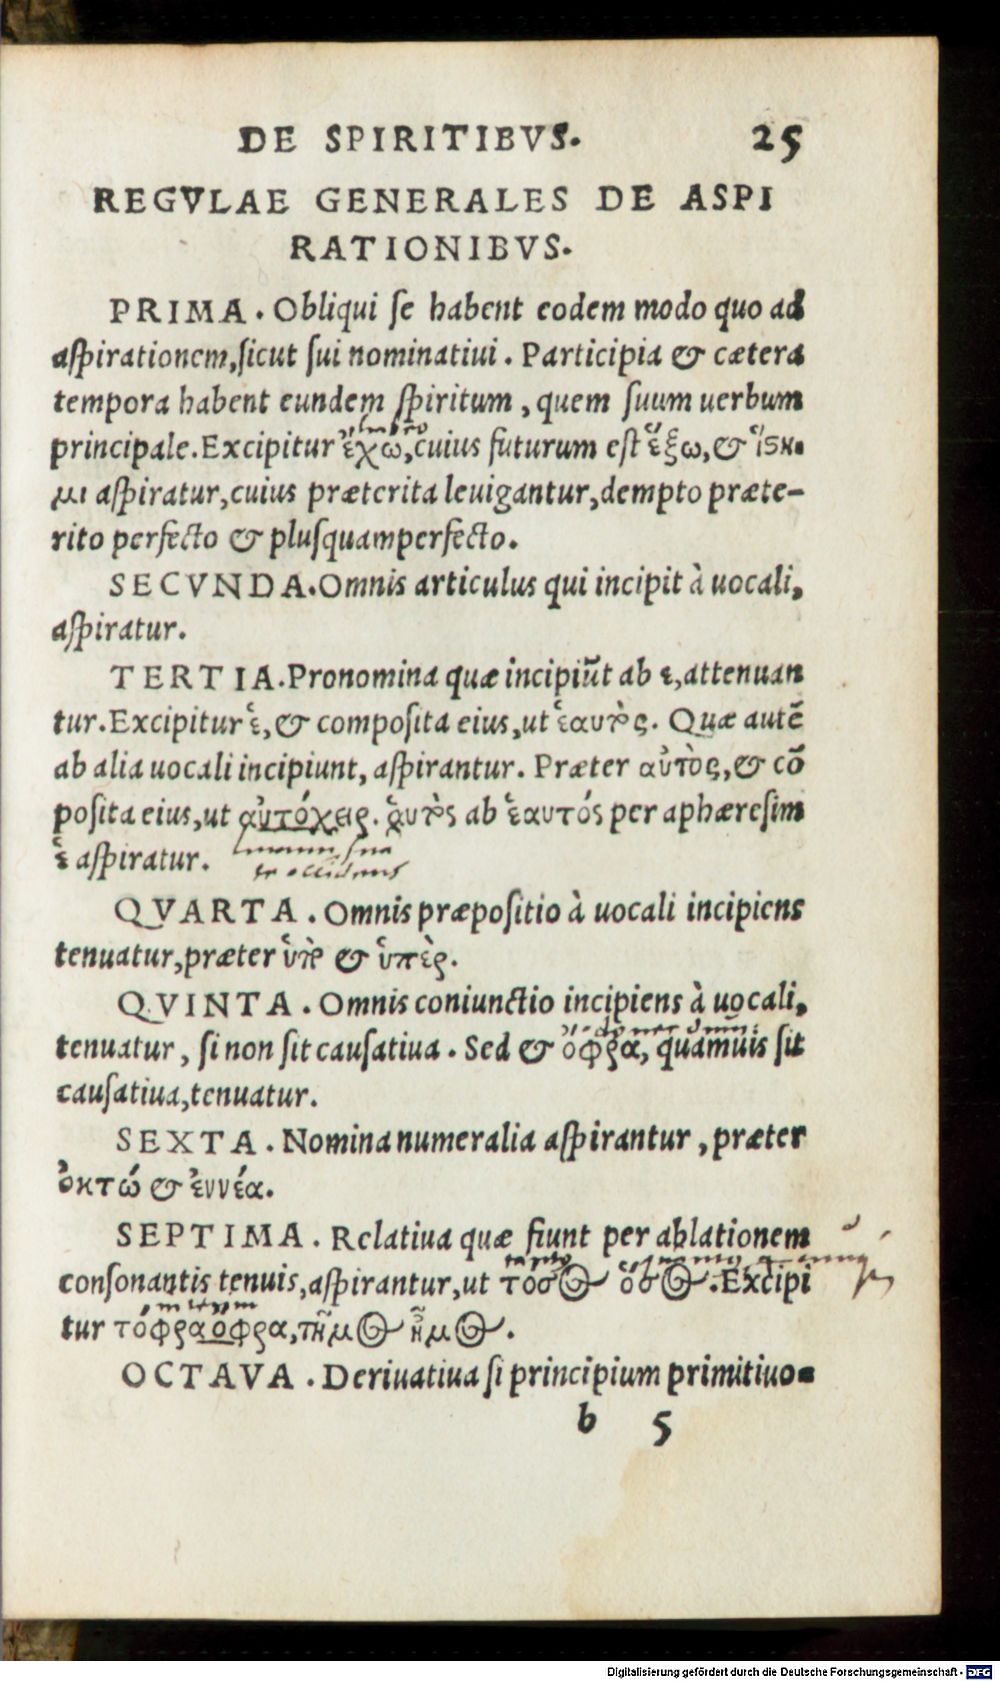 DE SPIRITIBVS. 25
REGVLAE GENERALES DE ASPI
RATIONIBVS.
PRIMA. Obliqui ſe habent eodem modo quo ad
aſpirationem, ſicut ſui nominatiui. Participia & cætera
tempora habent eundem ſpiritum, quem ſuum uerbum
principale. Excipitur ἔχω, cuius futurum eſt ἕξω, & ἵϛη-
μι aſpiratur, cuius præterita leuigantur, dempto præte-
rito perfecto & pluſquamperfecto.
SECVNDA. Omnis articulus qui incipit à uocali,
aſpiratur.
TERTIA. Pronomina quæ incipiũt ab ε, attenuan
tur. Excipitur ἑ, & compoſita eius, ut ἑαυτὸς. Quæ autẽ
ab alia uocali incipiunt, aſpirantur. Præter αὐτὸς, & cõ
poſita eius, ut αὐτόχειρ. ἁυτὸς ab ἑαυτός per aphæreſim
ἑ aſpiratur.
manu sua
se occidens
QVARTA. Omnis præpoſitio à uocali incipiens
tenuatur, præter ὑπὸ & ὑπὲρ.
QVINTA. Omnis coniunctio incipiens à uocali,
tenuatur, ſi non ſit cauſatiua. Sed & ὄφρα, quamuis ſit
cauſatiua, tenuatur.
SEXTA. Nomina numeralia aſpirantur, præter
ὀκτώ & ἐννέα.
SEPTIMA. Relatiua quæ fiunt per ablationem
conſonantis tenuis, aſpirantur, ut τόσος ὅσος. Excipi
tur τόφρα ὄφρα, τῆμος ἦμος.
OCTAVA. Deriuatiua ſi principium primitiuo-
b 5
Digitalisierung gefördert durch die Deutsche Forschungsgemeinschaft - DFG